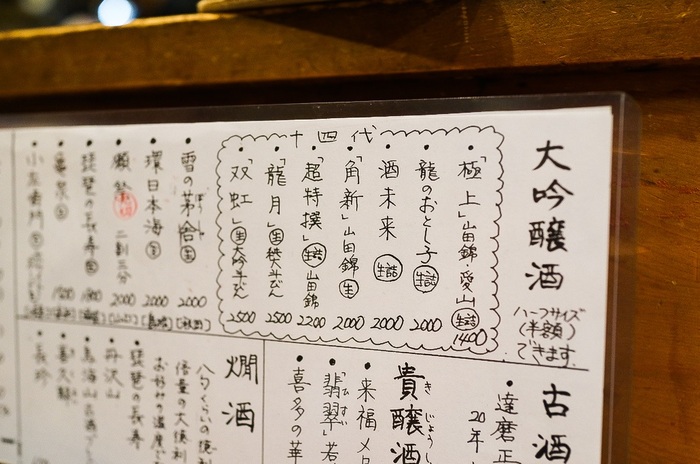 大吟醸酒
ハーフサイズ
(半額)
できます
十四代
・「極上」山田錦・愛山 生詰 1400
・龍のおとし子 生詰 2000
・酒未来 生詰 2000
・「角新」山田錦 生 2000
・「超特撰」生詰 山田錦 2200
・「龍月」生 2500
・「双虹」生 大吟斗びん 2500
・雪の茅舎 生 2000 [秋田]
・環日本海 生 2000 [島根]
二割三分 2000 [山口]
・琵琶の長寿 生
古酒
・達磨正
20年
貴醸酒
きじょうし
・来福メロ
・「翡翠」若
ひすい
・喜多の華
燗酒
八勺くらいの徳利
倍量の大徳利
お好みの温度で
・琵琶の長寿
・丹沢山
・鳥海山
・喜久酔
・長珍